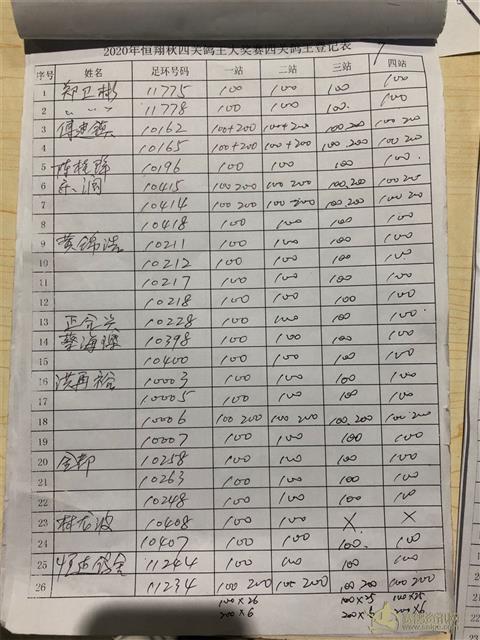 2020年恒翔秋四关鸽王大奖赛四关鸽王登记表
序号 姓名 足环号码 一站 二站 三站 四站
1 郑卫彬 11775 100 100 100 100
2 〃 〃 〃 11778 100 100 100. 100
3 10162 100+200 100+200 100.200 100 200
4 10165 100+200 100+200 100.200 100 200
5 10196 100 100 100 100.
6 10415 100 200 100 200 100.200 100 200
7 10414 100 200 100 200 100.200 100 200
8 10418 100 100 100 100
9 黄锦浩 10211 100 100 100 100
10 10212 100 100 100 100
11 10217 100 100 100 100
12 10218 100 100 100 100
13 10228 100 100 100 100
14 蔡海 10398 100 100 100 100
15 10400 100 100 100 100
16 洪再裕 10003 100 100 100 100
17 10005 100 100 100 100
18 10006 100 200 100 200 100.200 100.200
19 10007 100 100 100 100
20 10258 100 100 100 100
21 10263 100 100 100 100
22 10248 100 100 100 100
23 林龙波 10408 100 100 X. X
24 10407 100 100 100. 100
25 11244 100 100 100 100
26 11234 100 200 100 200 100 200 100 200
100×26 100×25 100×25
200×6 200×6